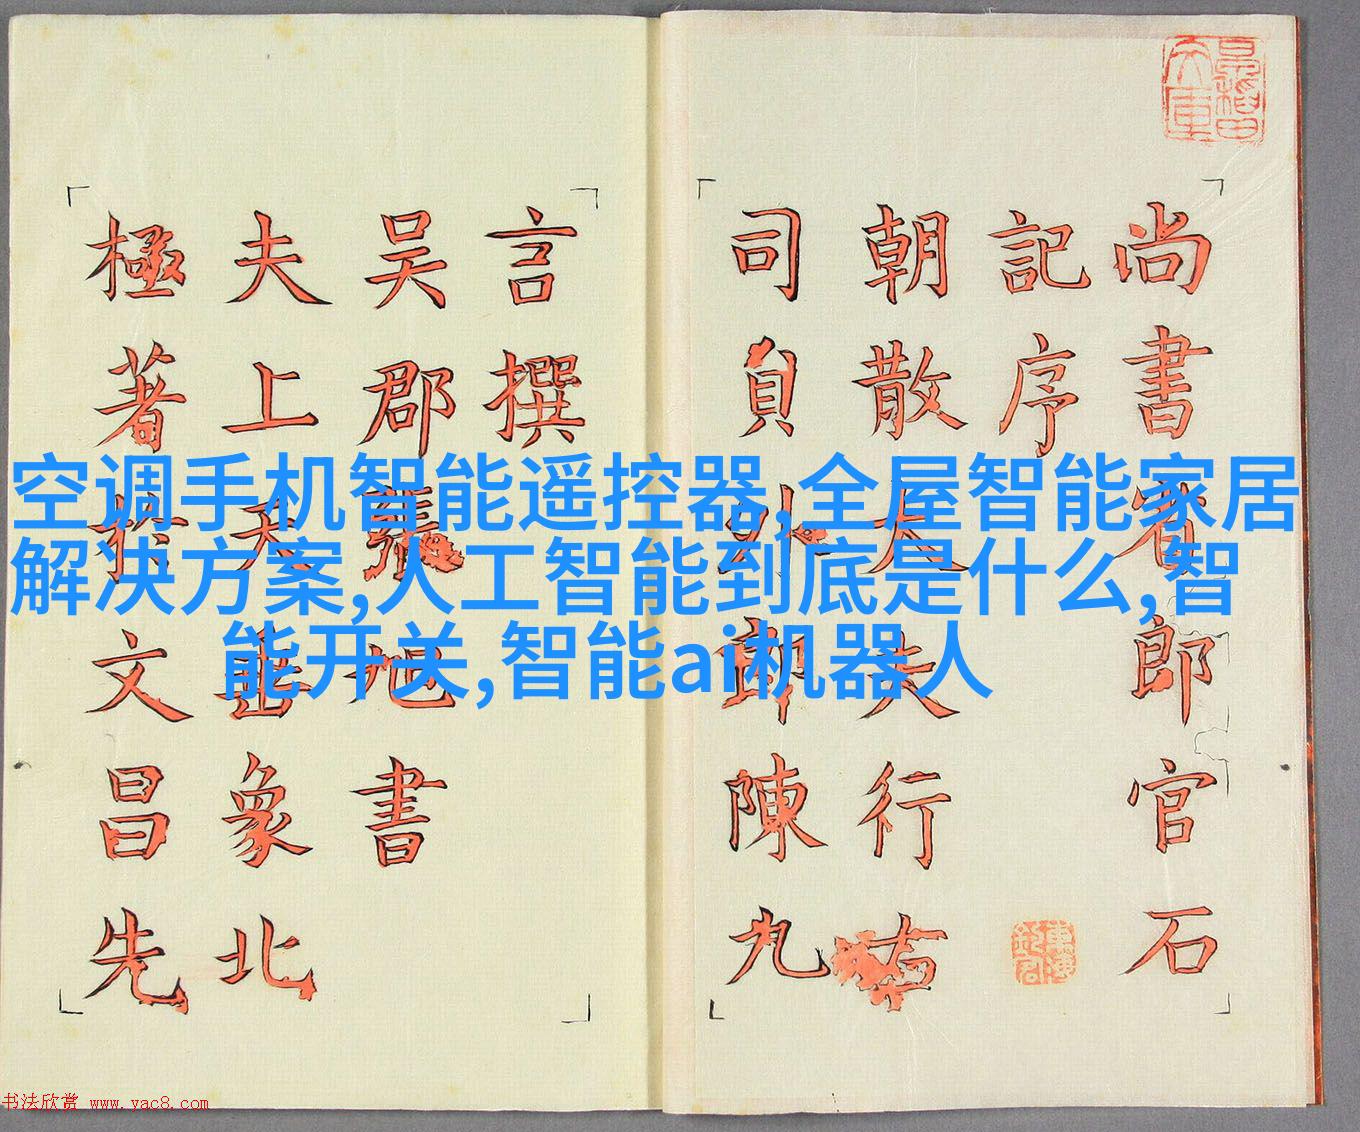 尚書省郎官石
記序
朝散大夫行右
司員外郎陳九
言撰
吴郡張旭書
夫上天垂象北
極著於文昌先
空调手机智能遥控器,全屋智能家居
解决方案,人工智能到底是什么,智
能开关,智能ai机器人
书法欣赏 www.yac8.com